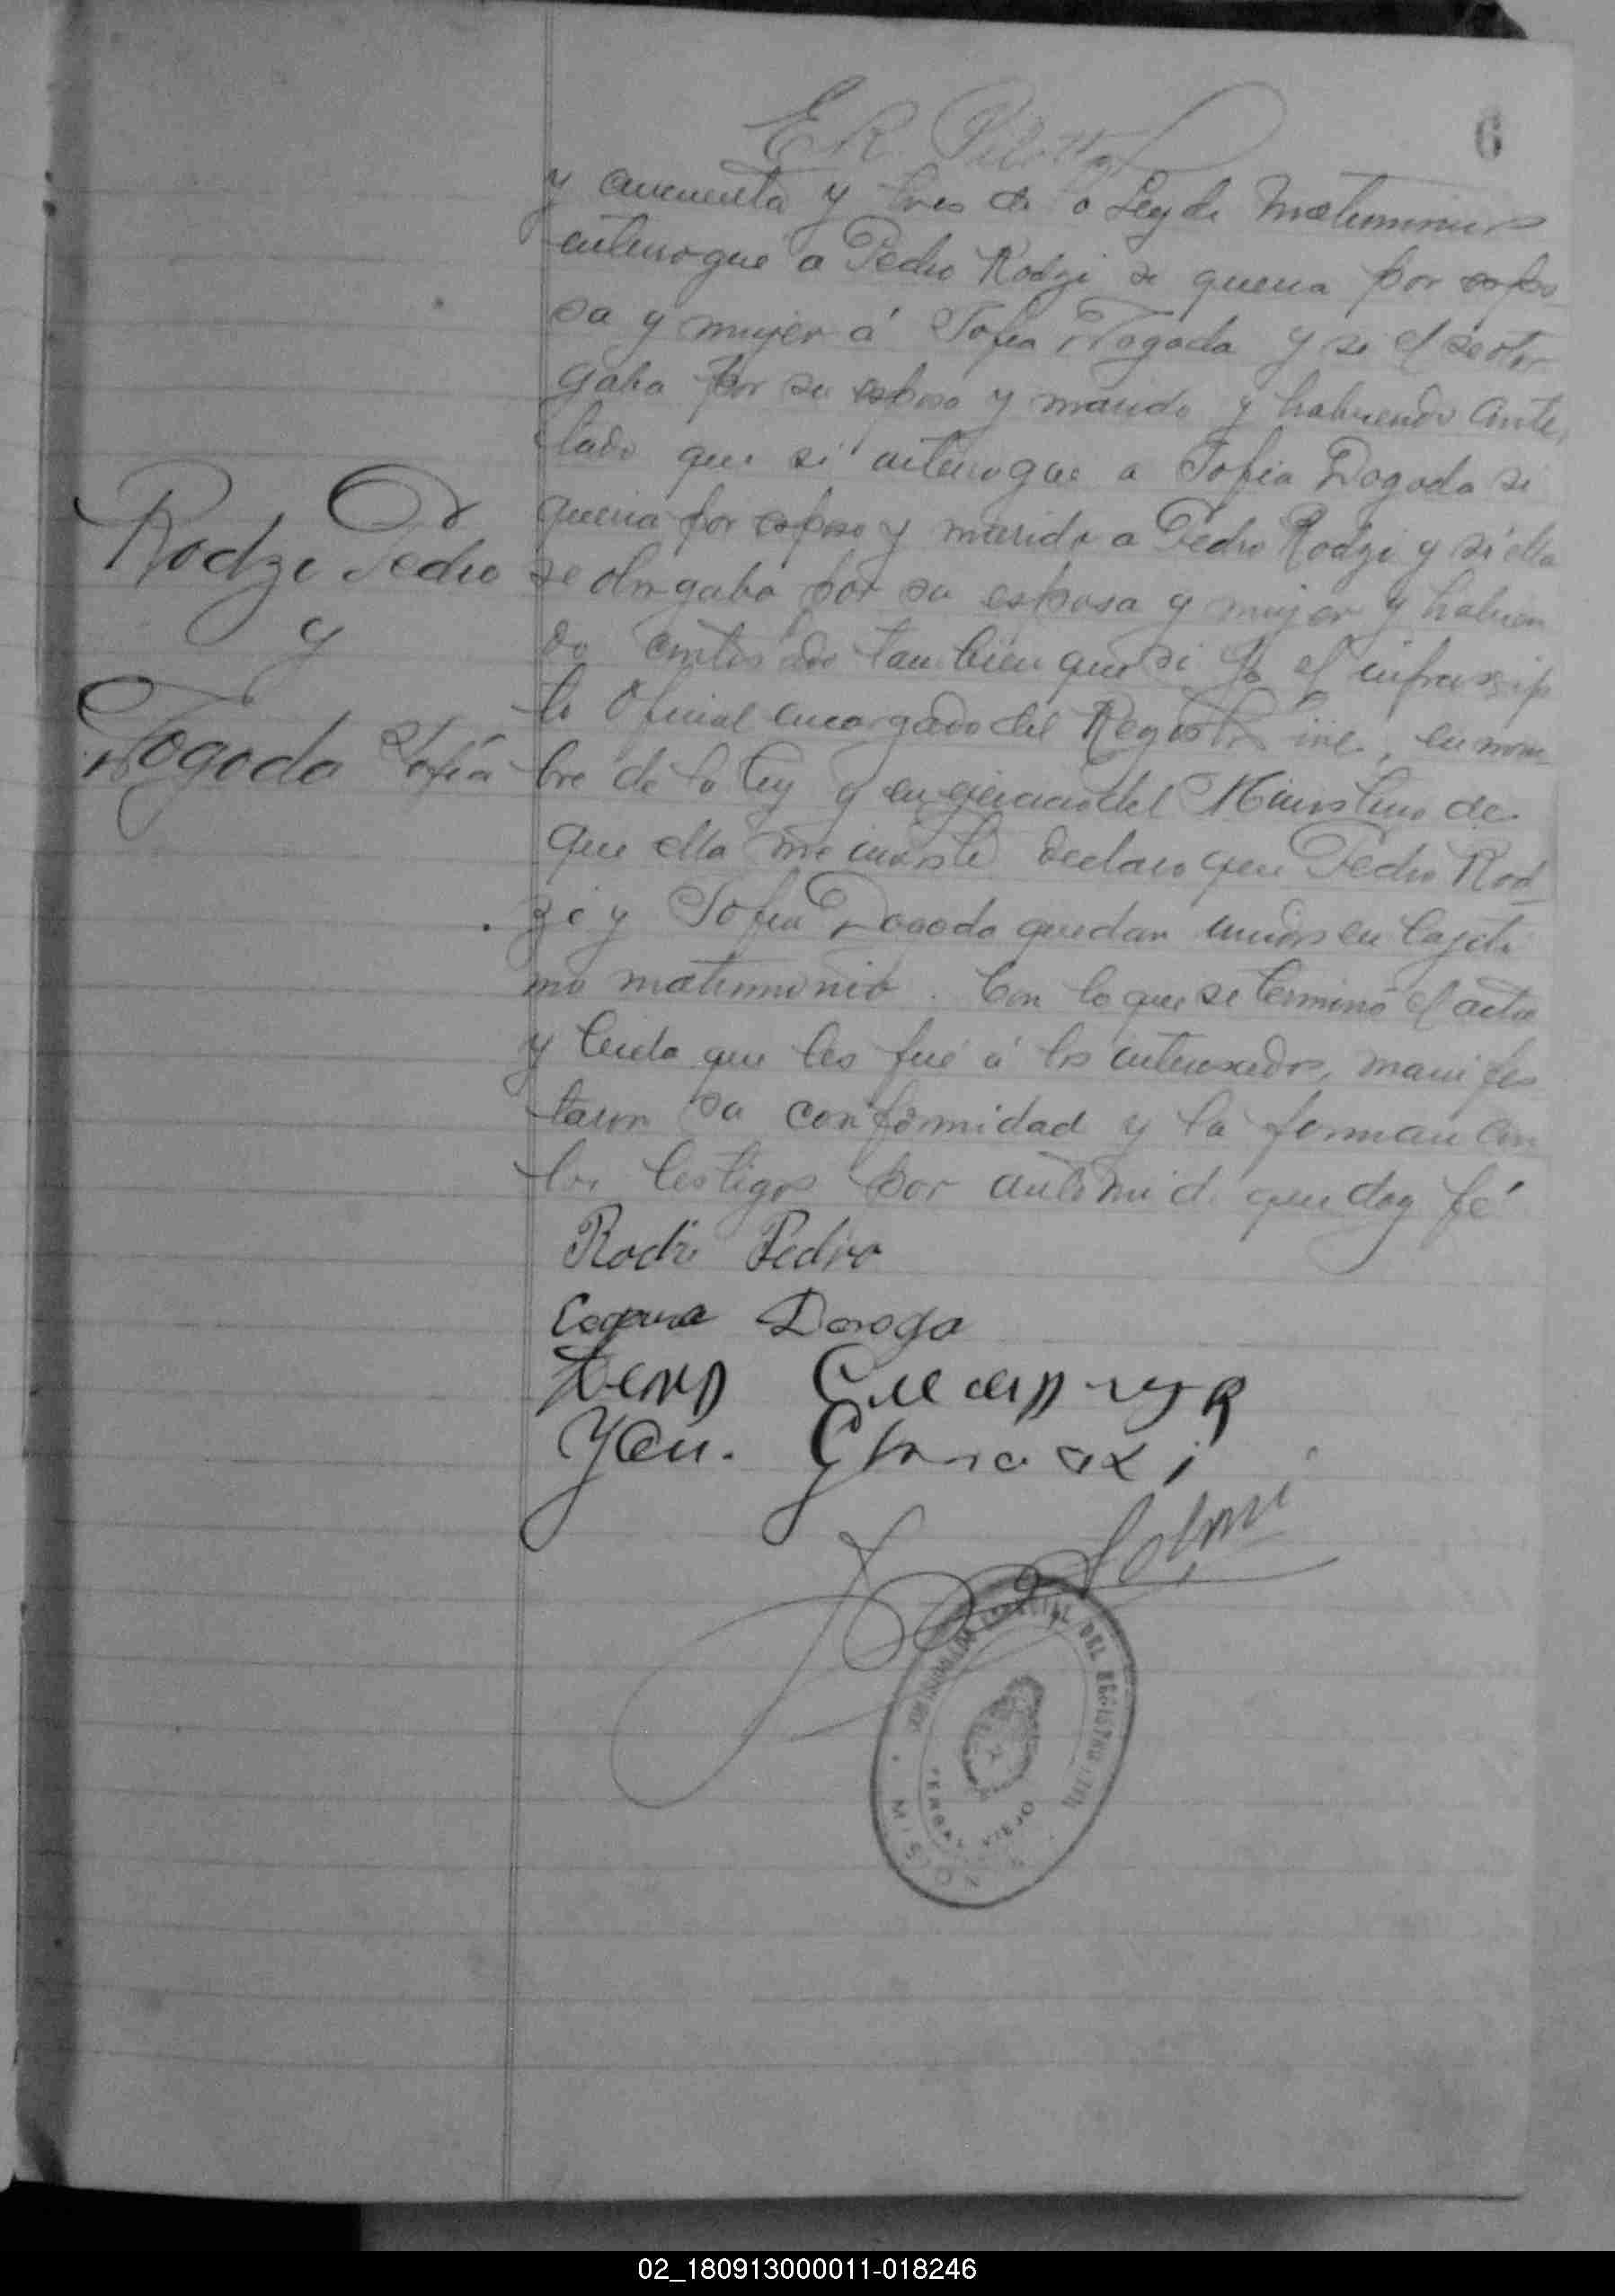 6
y cincuenta y tres de la Ley de Matrimonio
interrogué a Pedro Rodzi si queria por espo
sa y mujer á Sofia Dogoda y si el se otor
gaba por su esposo y marido y habiendo contes
tado que si interrogué a Sofia Dogoda si
queria por esposo y marido a Pedro Rodzi y si ella
se otorgaba por su esposa y mujer y habien
do contestado tambien que si Yo el infrascrip
to Oficial encargado del Registro Civil, en nom
bre de la ley y en ejercicio del Ministerio de
que ella me inviste declaro que Pedro Rod
zi y Sofia Dogoda quedan unidos en legiti
mo matrimonio. Con lo que se terminó el acta
y leida que les fué á los interesados, manifes
taron su conformidad y la firman con
los testigos por ante mi de que doy fé
Rodzi Pedro
y
Dogoda Sofía
Rodzi Pedro
Doroga
DEL REGISTRO CIVIL
CERRO VIEJO
MISIONES
02_180913000011-018246